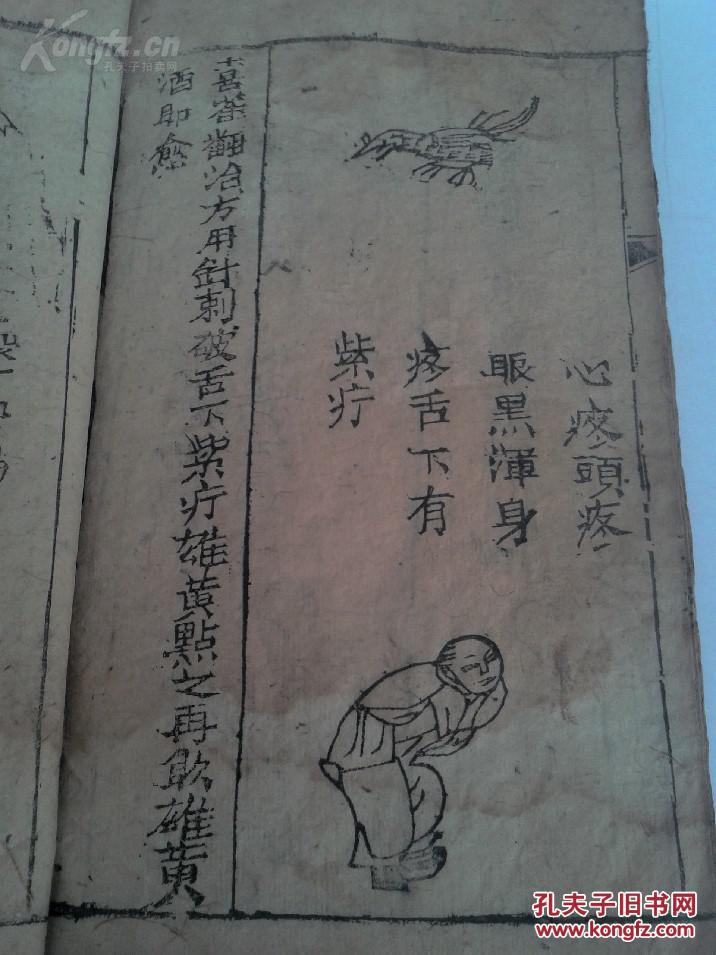 心疼頭疼
眼黑渾身
疼舌下有
紫疔
喜雀翻治方用針刺破舌下紫疔雄黃點之再飲雄黃
酒即愈
Kongfz.cn
孔夫子拍卖网
孔夫子旧书网
www.kongfz.com